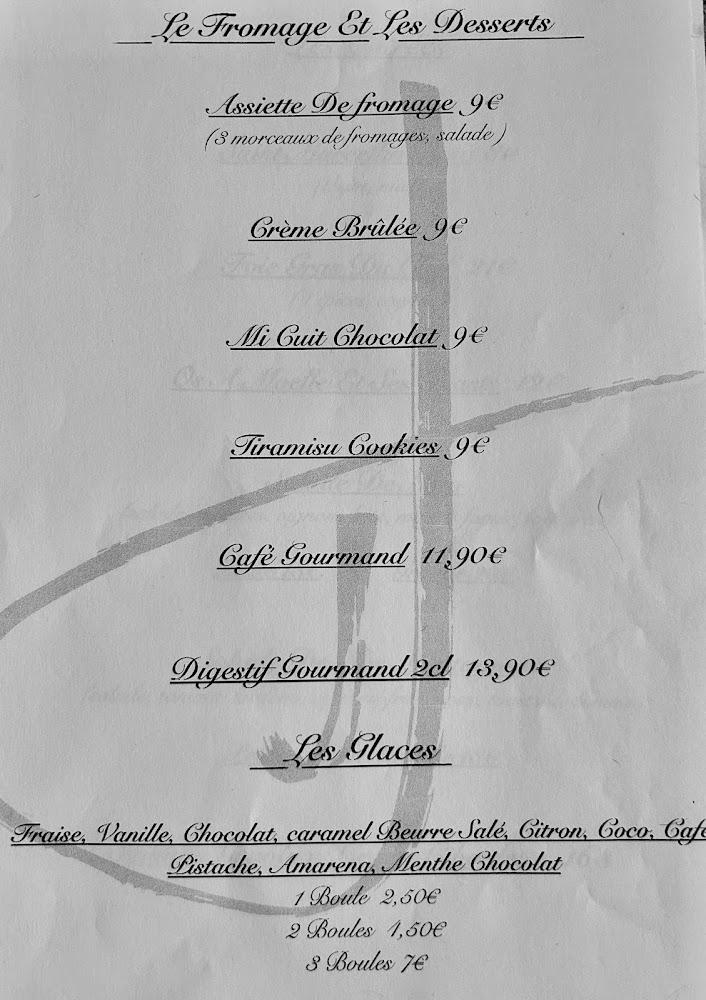 Le Fromage Et Les Desserts
Assiette De fromage 9€
(3 morceaux de fromages, salade)
Crème Brûlée 9€
Mi Cuit Chocolat 9€
Tiramisu Cookies 9€
Café Gourmand 11,90€
Digestif Gourmand 2cl 13,90€
Les Glaces
Fraise, Vanille, Chocolat, caramel Beurre Salé, Citron, Coco, Café
Pistache, Amarena, Menthe Chocolat
1 Boule 2,50€
2 Boules 4,50€
3 Boules 7€